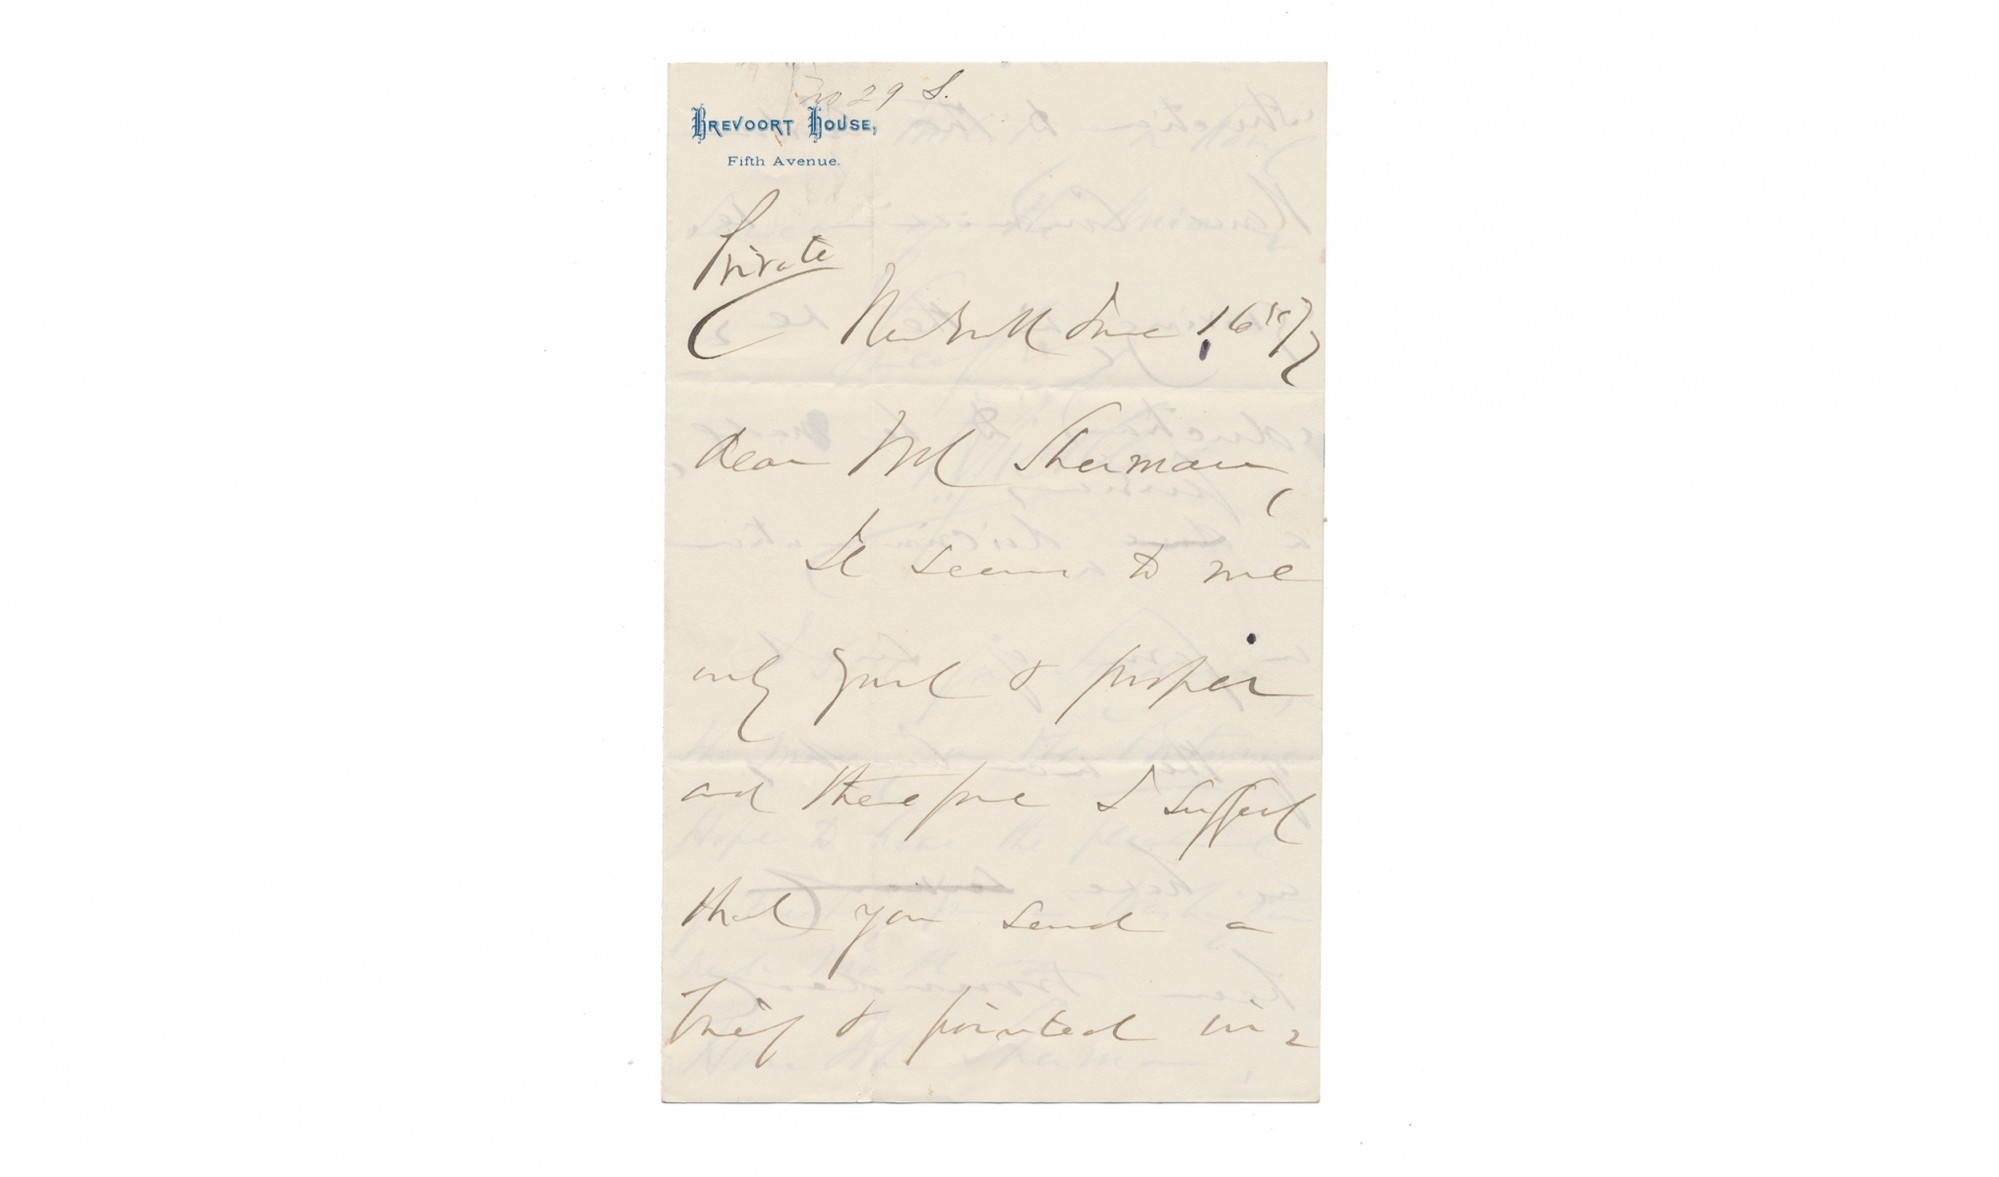 no 29 S.
BREVOORT HOUSE,
Fifth Avenue.
Private
New York June 16 '77
dear Mr Sherman,
It seems to me
only just & proper
and therefore I suggest
that you send a
brief & pointed in=